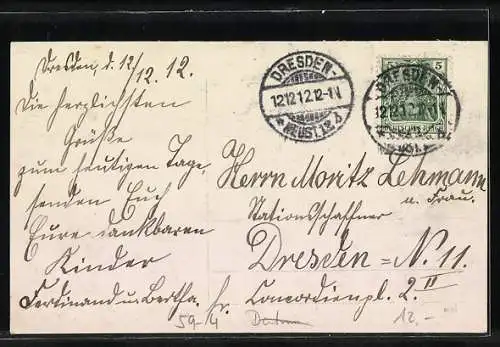 Dresden, d. 12/12. 12.
Die herzlichsten
Grüße
zum heutigen Tage
senden Euch
Eure dankbaren
Kinder
Ferdinand u. Bertha.
DRESDEN-
12.12.12.12-1N
* NEUST. 12 b
5
DRESDEN-
12.12.12.
Herrn Moritz Lehmann
u. Frau.
Stationsschaffner
Dresden = N. 11.
hr. Concordienpl. 2. II
59-4
Datum
12,-